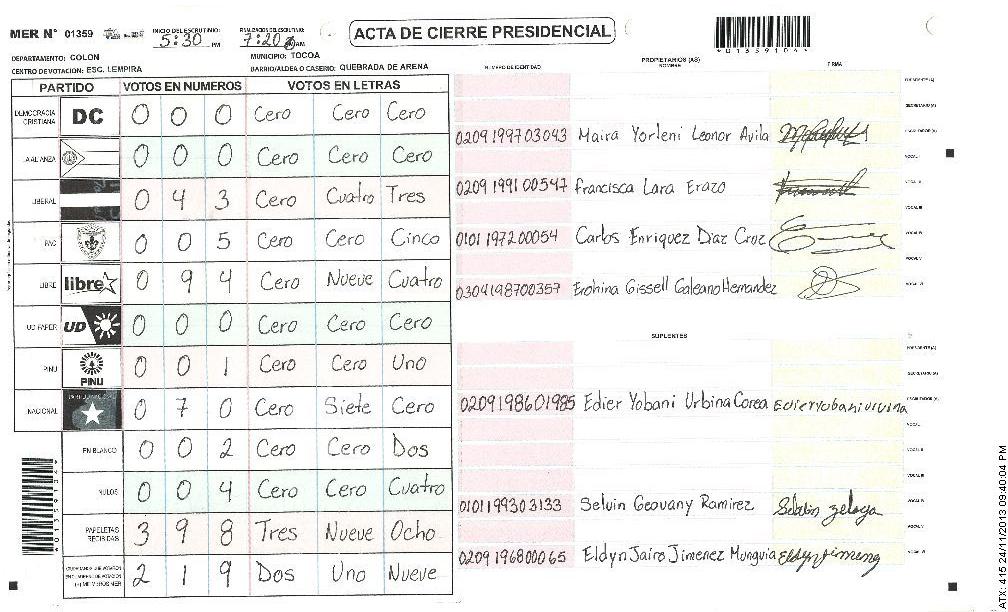 MER N° 01359
INICIO DEL ESCRUTINIO: 5:30 PM
FINALIZACION DEL ESCRUTINIO: 7:20 AM
ACTA DE CIERRE PRESIDENCIAL
*01359104*
DEPARTAMENTO: COLON
MUNICIPIO: TOCOA
CENTRO DE VOTACION: ESC. LEMPIRA
BARRIO/ALDEA O CASERIO: QUEBRADA DE ARENA
PARTIDO VOTOS EN NUMEROS VOTOS EN LETRAS
DEMOCRACIA CRISTIANA DC 0 0 0 Cero Cero Cero
LA ALIANZA 0 0 0 Cero Cero Cero
LIBERAL 0 4 3 Cero Cuatro Tres
PAC 0 0 5 Cero Cero Cinco
LIBRE libre 0 9 4 Cero Nueve Cuatro
UD FAPER UD 0 0 0 Cero Cero Cero
PINU PINU 0 0 1 Cero Cero Uno
NACIONAL 0 7 0 Cero Siete Cero
EN BLANCO 0 0 2 Cero Cero Dos
NULOS 0 0 4 Cero Cero Cuatro
PAPELETAS RECIBIDAS 3 9 8 Tres Nueve Ocho
2 1 9 Dos Uno Nueve
*01359104*
NUMERO DE IDENTIDAD
PROPIETARIOS (AS)
NOMBRE
FIRMA
PRESIDENTE (A)
SECRETARIO (A)
0209 199703043 Maira Yorleni Leonor Avila ESCRUTADOR (A)
VOCAL I
0209 1991 00547 Francisca Lara Erazo VOCAL II
VOCAL III
0101 197200054 Carlos Enriquez Diaz Cruz VOCAL IV
VOCAL V
0304198700357 Erohina Gissell Galeano Hernandez VOCAL VI
SUPLENTES
PRESIDENTE (A)
SECRETARIO (A)
0209198601985 Edier Yobani Urbina Corea Edieryobaniurvina ESCRUTADOR (A)
VOCAL I
VOCAL II
VOCAL III
0101199303133 Seluin Geovany Ramirez VOCAL IV
VOCAL V
0209 196800065 Eldyn Jairo Jimenez Munguia VOCAL VI
ATX: 415 24/11/2013 09:40:04 PM